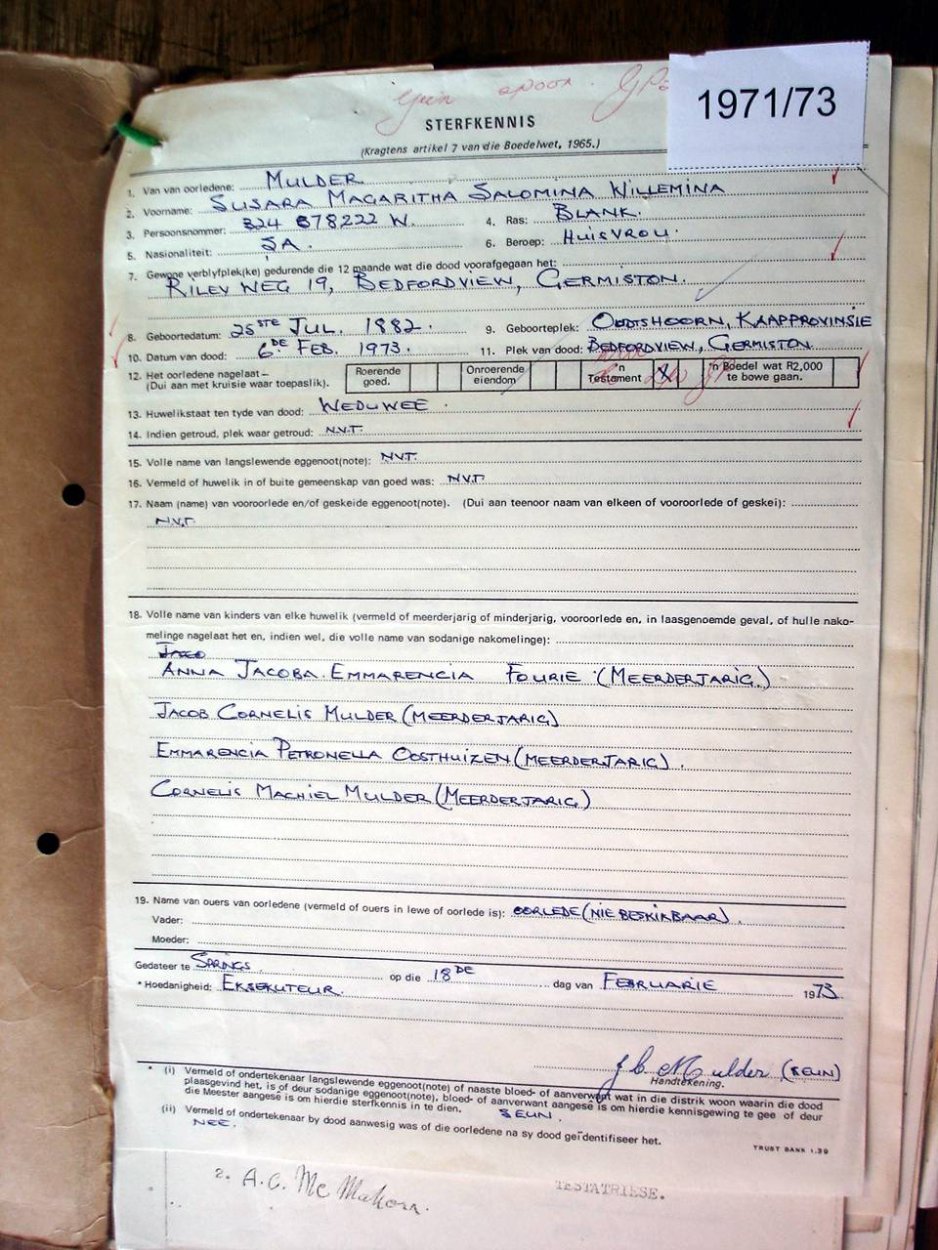 Geen
1971/73
STERFKENNIS
(Kragtens artikel 7 van die Boedelwet, 1965.)
1. Van van oorledene: MULDER
2. Voorname: SUSARA MAGARITHA SALOMINA WILLEMINA
3. Persoonsnommer: 324 678222 W. 4. Ras: BLANK.
5. Nasionaliteit: SA. 6. Beroep: HUISVROU.
7. Gewone verblyfplek(ke) gedurende die 12 maande wat die dood voorafgegaan het:
RILEY WEG 19, BEDFORDVIEW, GERMISTON.
8. Geboortedatum: 25STE JUL. 1882. 9. Geboorteplek: OUDTSHOORN, KAAPPROVINSIE
10. Datum van dood: 6DE FEB. 1973. 11. Plek van dood: BEDFORDVIEW, GERMISTON
12. Het oorledene nagelaat— Roerende Onroerende 'n 'n Boedel wat R2,000
(Dui aan met kruisie waar toepaslik). goed. eiendom Testament X te bowe gaan.
13. Huwelikstaat ten tyde van dood: WEDUWEE.
14. Indien getroud, plek waar getroud: N.V.T.
15. Volle name van langslewende eggenoot(note): NVT.
16. Vermeld of huwelik in of buite gemeenskap van goed was: N.V.T
17. Naam (name) van vooroorlede en/of geskeide eggenoot(note). (Dui aan teenoor naam van elkeen of vooroorlede of geskei):
N.V.T
18. Volle name van kinders van elke huwelik (vermeld of meerderjarig of minderjarig, vooroorlede en, in laasgenoemde geval, of hulle nako-
melinge nagelaat het en, indien wel, die volle name van sodanige nakomelinge):
ANNA JACOBA EMMARENCIA FOURIE (MEERDERJARIG)
JACOB CORNELIS MULDER (MEERDERJARIG)
EMMARENCIA PETRONELLA OOSTHUIZEN (MEERDERJARIG).
CORNELIS MACHIEL MULDER (MEERDERJARIG)
19. Name van ouers van oorledene (vermeld of ouers in lewe of oorlede is): OORLEDE (NIE BESKIKBAAR).
Vader:
Moeder:
Gedateer te SPRINGS op die 18DE dag van FEBRUARIE 1973.
* Hoedanigheid: EKSEKUTEUR.
J.C. Mulder (SEUN)
Handtekening.
* (i) Vermeld of ondertekenaar langslewende eggenoot(note) of naaste bloed- of aanverwant wat in die distrik woon waarin die dood
plaasgevind het, is of deur sodanige eggenoot(note), bloed- of aanverwant aangesê is om hierdie kennisgewing te gee of deur
die Meester aangesê is om hierdie sterfkennis in te dien. SEUN.
(ii) Vermeld of ondertekenaar by dood aanwesig was of die oorledene na sy dood geïdentifiseer het.
NEE.
TRUST BANK 1.39
2. A.C. McMahon.
TESTATRIESE.